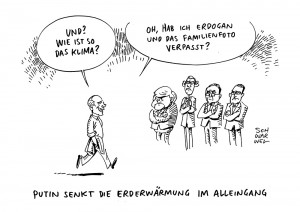 UND?
WIE IST SO
DAS KLIMA?
OH, HAB ICH ERDOGAN
UND DAS FAMILIENFOTO
VERPASST?
SCH
WAR
WEL
PUTIN SENKT DIE ERDERWÄRMUNG IM ALLEINGANG